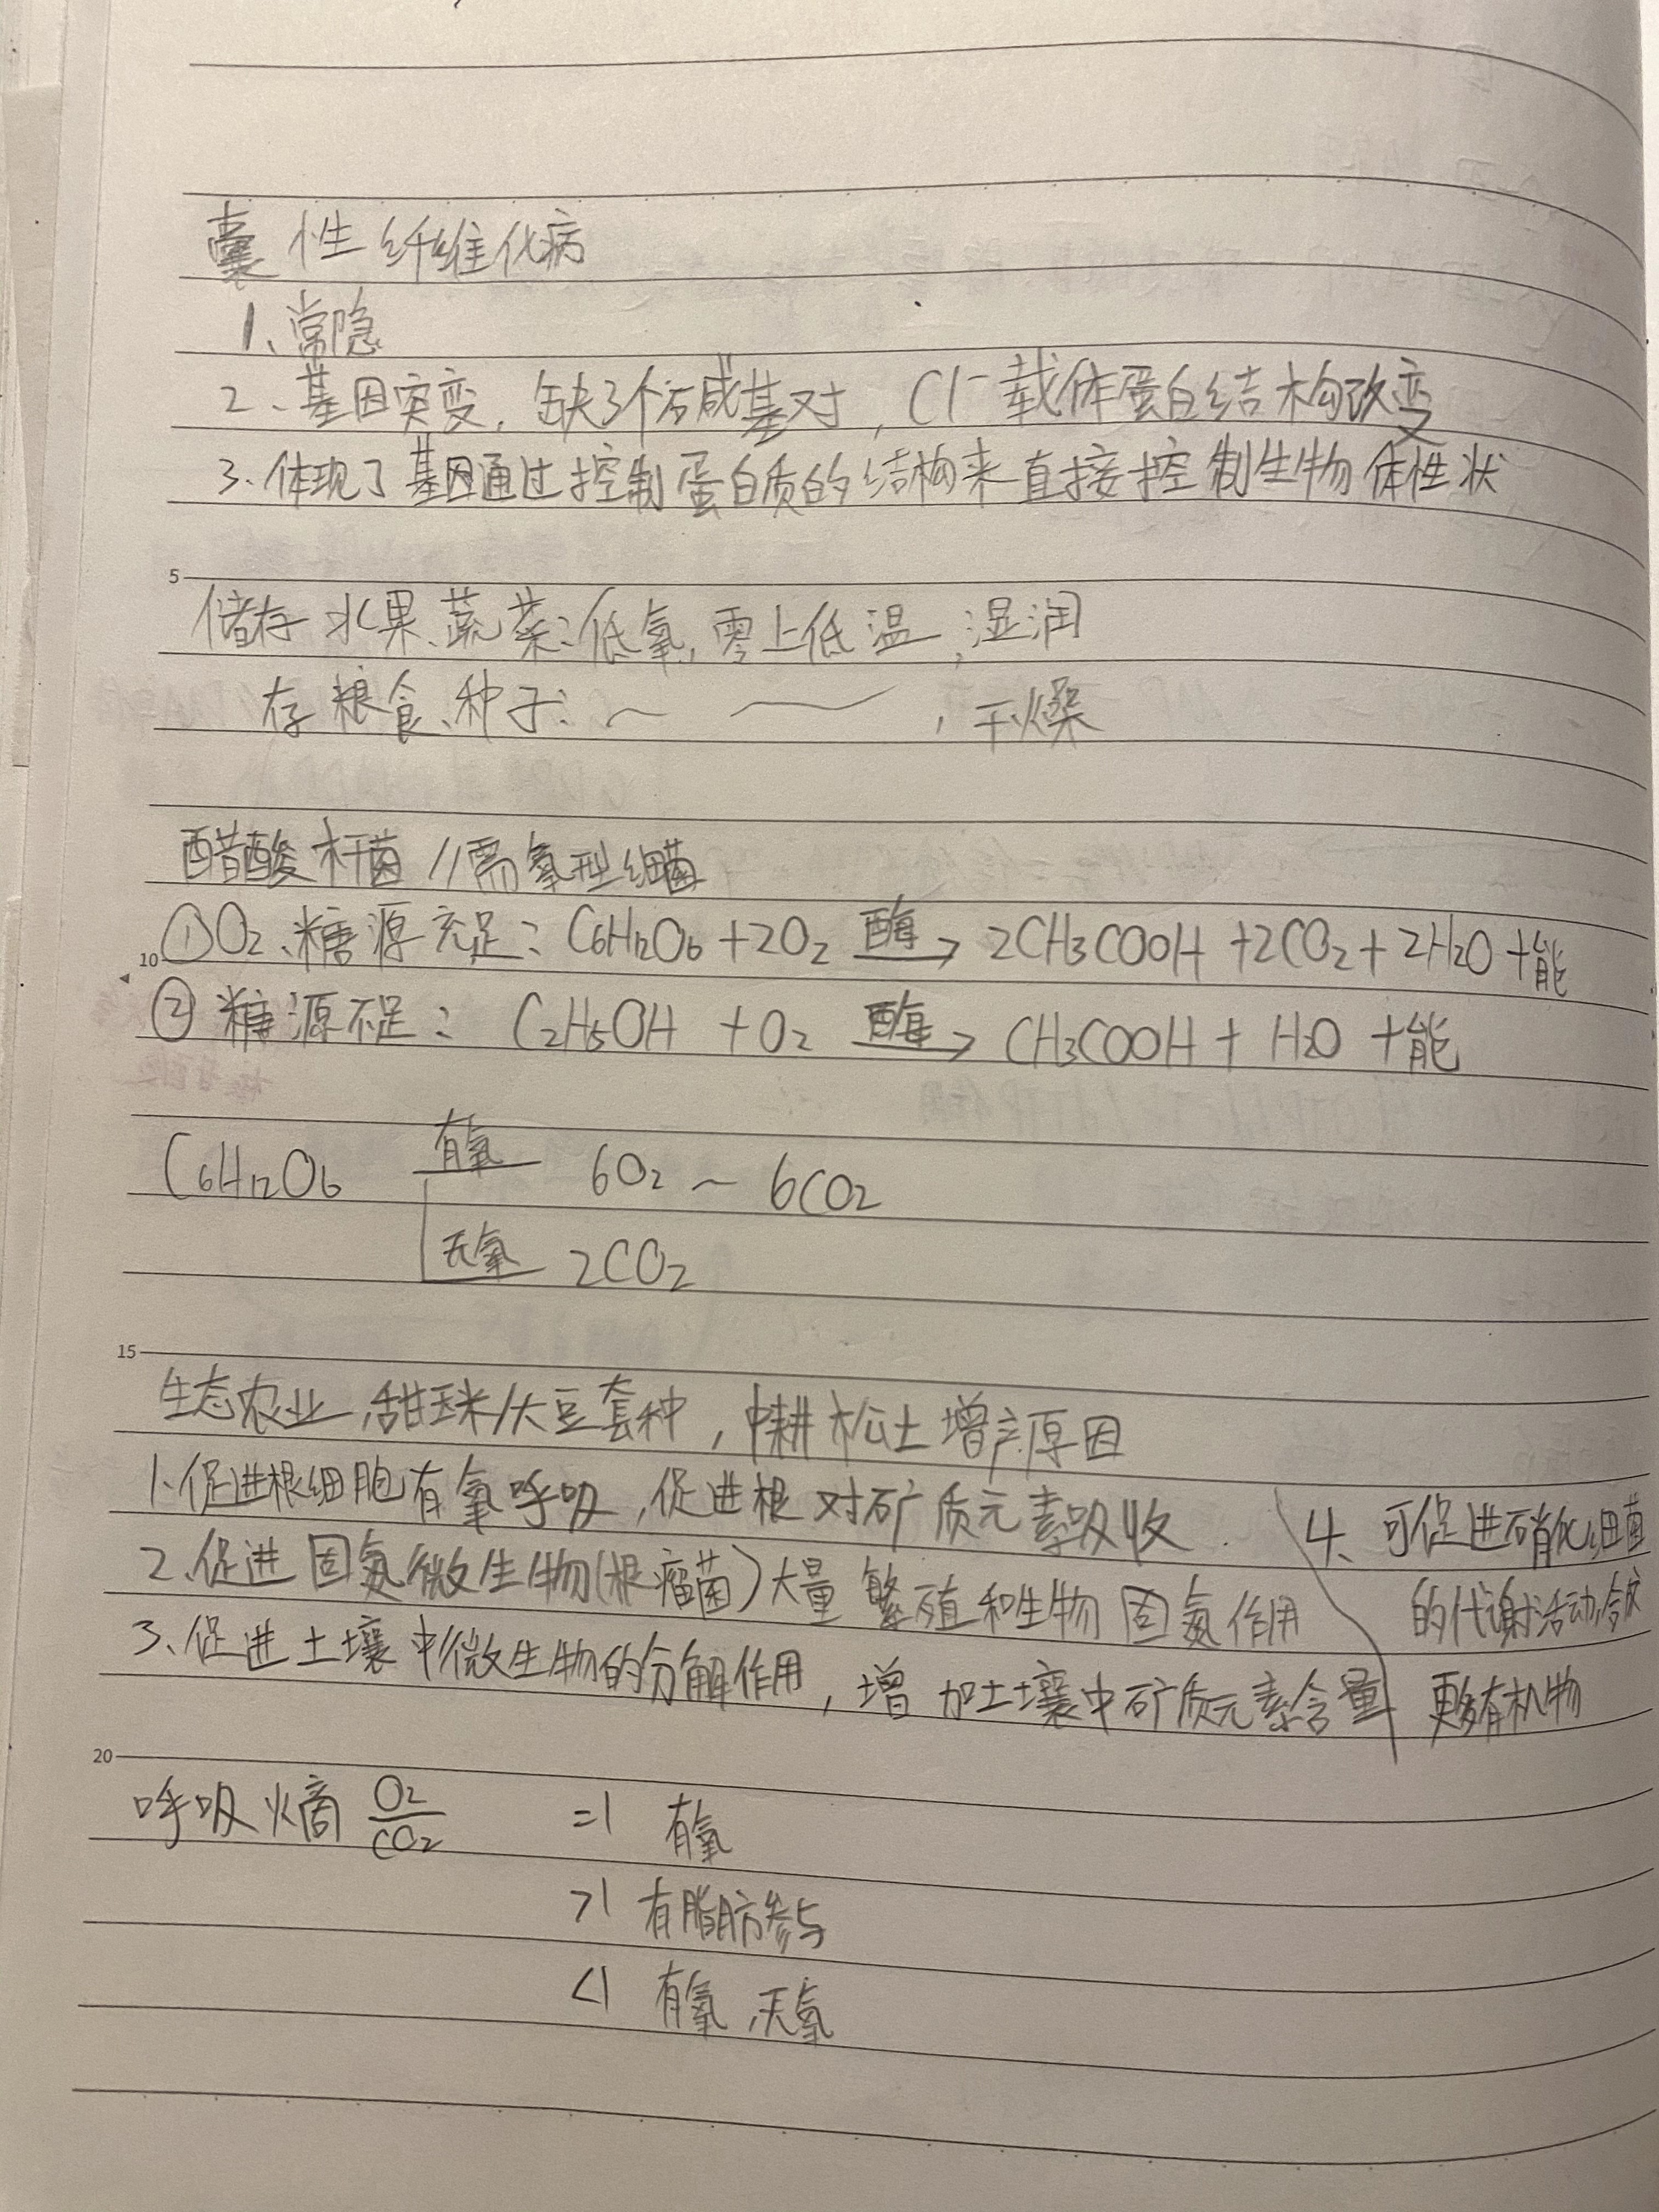 囊性纤维化病
1、常隐
2、基因突变，缺3个碱基对，Cl⁻载体蛋白结构改变
3、体现了基因通过控制蛋白质的结构来直接控制生物体性状
5
储存水果、蔬菜：低氧，零上低温，湿润
存粮食、种子：～ ～，干燥
醋酸杆菌 //需氧型细菌
10
①O₂、糖源充足：C₆H₁₂O₆+2O₂ 酶→ 2CH₃COOH+2CO₂+2H₂O+能
②糖源不足：C₂H₅OH+O₂ 酶→ CH₃COOH+H₂O+能
C₆H₁₂O₆ 有氧 6O₂～6CO₂
无氧 2CO₂
15
生态农业—甜玉米/大豆套种，耕松土增产原因
1.促进根细胞有氧呼吸，促进根对矿质元素吸收
2.促进固氮微生物(根瘤菌)大量繁殖和生物固氮作用
3.促进土壤中微生物的分解作用，增加土壤中矿质元素含量
4、可促进硝化细菌
的代谢活动，合成
更多有机物
20
呼吸熵 O₂/CO₂ =1 有氧
>1 有脂肪参与
<1 有氧、无氧